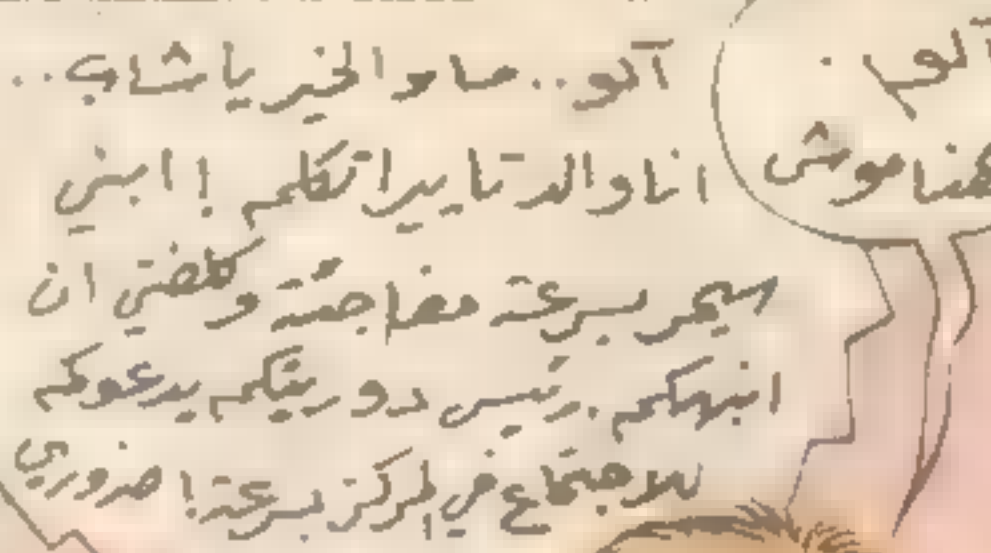 آلو
هنا موش
آلو.. مساء الخير يا شاب..
انا والد تايبر اتكلم! ابني
سيمر بسرعة مفاجئة وكلفني ان
انبهكم. رئيس دوريتكم يدعوكم
للاجتماع في المركز بسرعة! ضروري